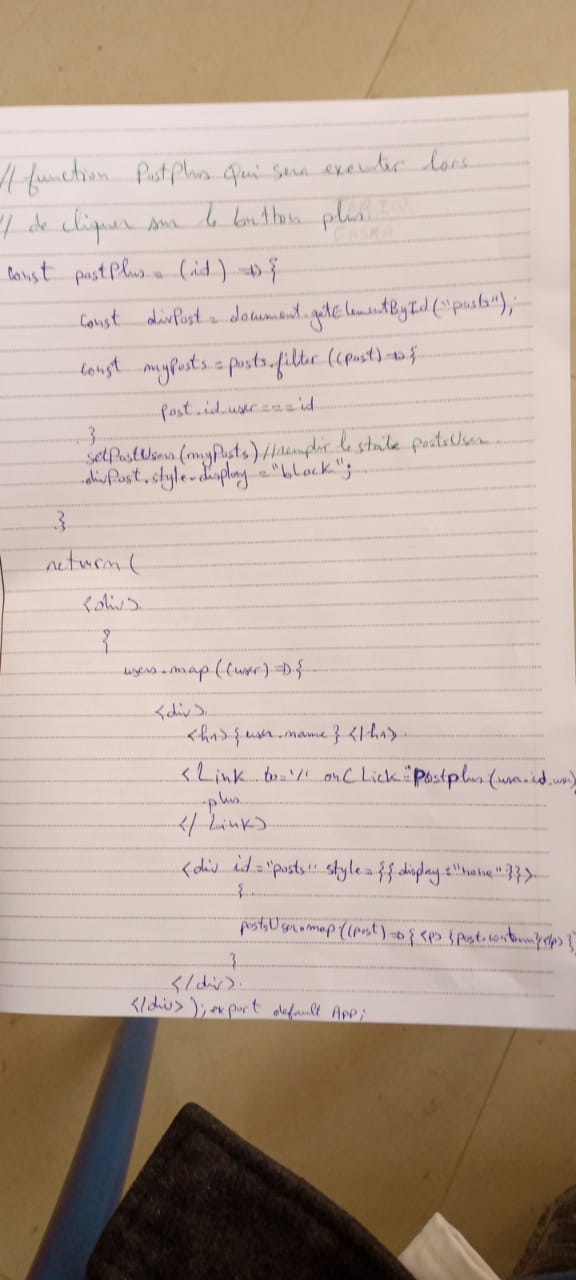 // function PostPlus qui sera executer lors
// de cliquer sur le button plus
const postPlus = (id) => {
const divPost = document.getElementById("posts");
const myPosts = posts.filter((post) => {
post.id_user === id
}
setPostUsers(myPosts) //remplir le state postsUser
divPost.style.display = "block";
}
return (
<div>
{
users.map((user) => {
<div>
<h1>{user.name}</h1>
<Link to='/' onClick="Postplus(user.id_user)
plus
</Link>
<div id="posts" style={{display:"none"}}>
{
postsUser.map((post) => { <p>{post.contenu}</p> }
}
</div>
</div> ); export default App;